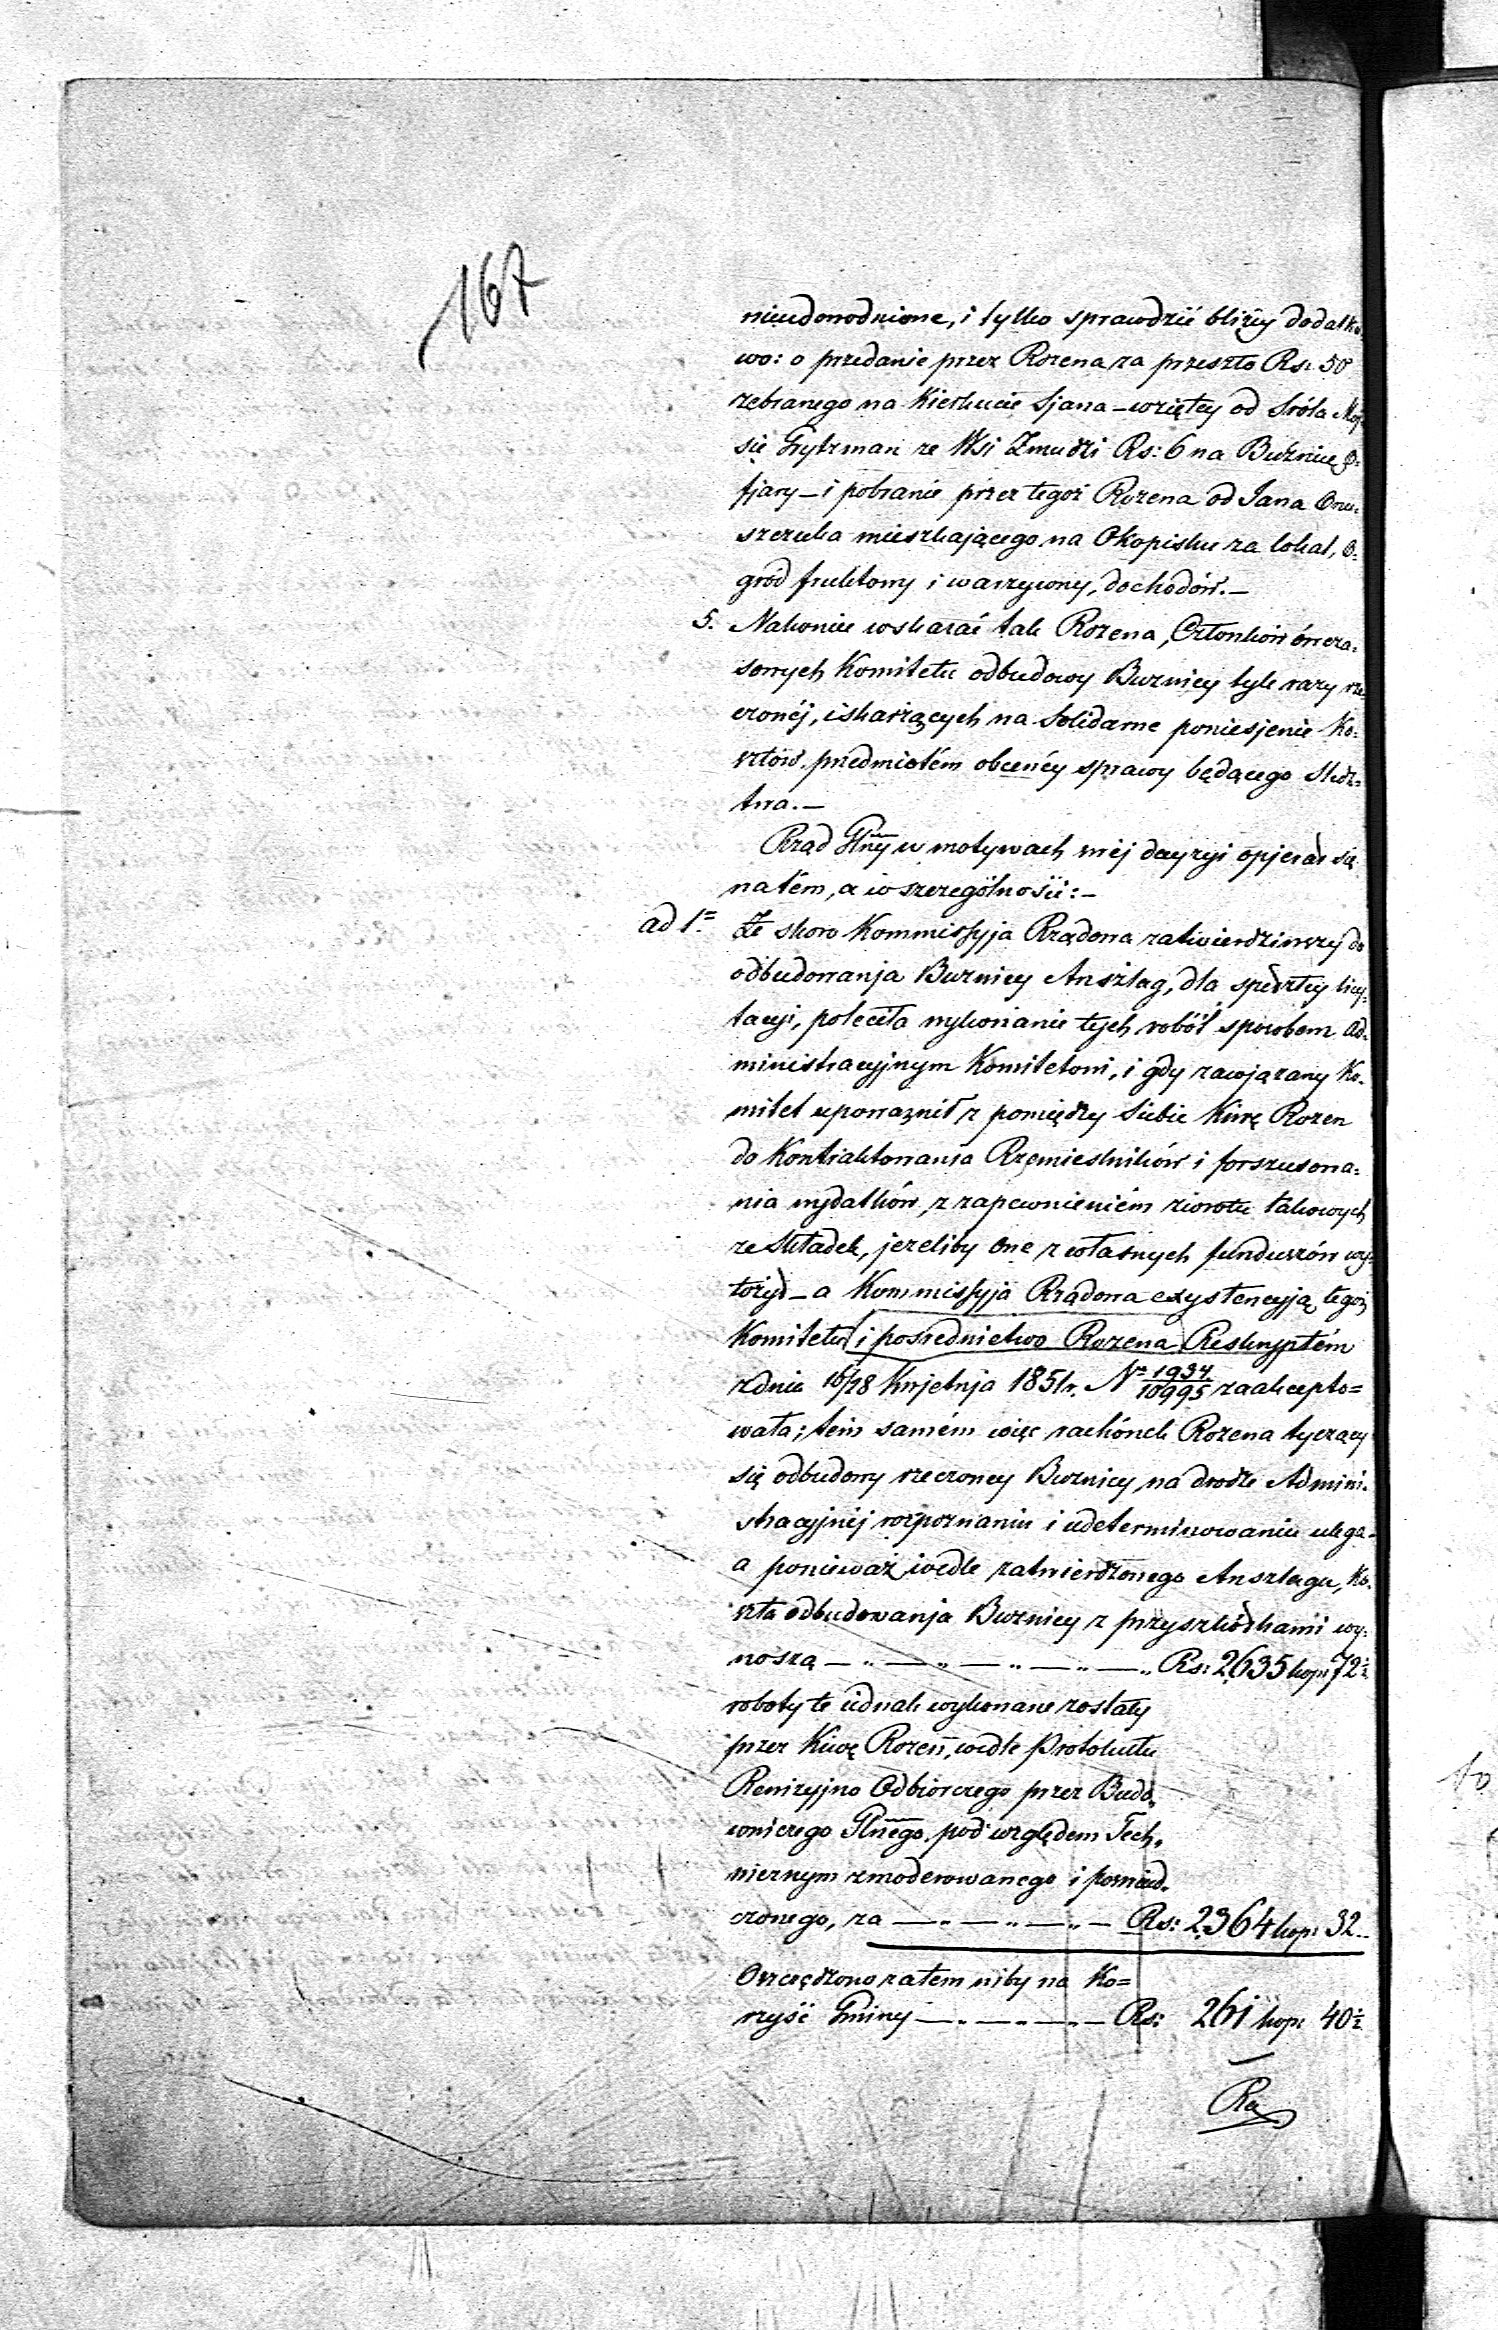 167
nieudowodnione, i tylko sprawdzić bliżey dodatko
wo: o przedanie przez Rozena za przeszło Rs: 50
zebranego na Kierkucie Sjana – wziętey od Sróla Moj
sie Grytzman ze Wsi Zmudzi Rs: 6 na Bużnicę O=
fjary – i pobranie przez tegoż Rozena od Jana Onu=
szczuka mieszkającego na Okopisku za lokal, O=
gród fruktowy i warzywny, dochodów. –
5. Nakoniec wskazać tak Rozena, Członków ówcza=
sowych Komitetu odbudowy Buznicy tyle razy rze
czonéj, i skarżących na Solidarne poniesjenie Ko=
sztów. przedmiotém obecnéy sprawy będącego Sledz=
twa. –
Rząd Glńy w motywach swéj decyzyi opjerał się
na tém, a w szczególności: –
ad 1= Że skoro Kommissyja Rządowa zatwierdziwszy do
odbudowanja Buznicy Anszlag, dla spełzłey licy=
tacyi, poleciła wykonanie tych robót sposobem Ad=
ministracyjnym Komitetowi, i gdy zawjązany Ko=
mitet upoważnił z pomiędzy Siebie Kiwę Rozen
do Kontraktowania Rzemieslników i forszusowa=
nia wydatków, z zapewnieniém zwrotu takowych
ze Składek, jezeliby One z własnych funduszów wy=
łożył – a Kommissyja Rządowa exystencyją tegoż
Komitetu i posrednictwo Rozena Reskryptém
z dnia 16/28 Kwjetnja 1851 r. No 1934/10995 zaakcepto=
wała; tém samém więc rachónek Rozena tyczący
się odbudowy rzeczoney Buznicy, na drodze Admini=
stracyjnéj rozpoznaniu i udeterminowaniu ulega –
a ponieważ wedle zatwierdzonego Anszlagu, Ko=
szta odbudowanja Buznicy z przyszkółkami wy=
noszą – „ – „ – „ – „ – „ Rs: 2635 kop: 72½
roboty te iednak wykonane zostały
przez Kiwę Rozen, wedle Protokułu
Rewizyjno Odbiorczego przez Budo=
wniczego Glńego. pod względem Tech=
nicznym zmoderowanego i poswiad=
czonego, za – „ – „ – „ – Rs: 2364 kop: 32. –
Oszczędzono zatem niby na Ko=
rzyść Gminy – „ – „ – „ – Rs: 261 kop: 40½
Ra
to